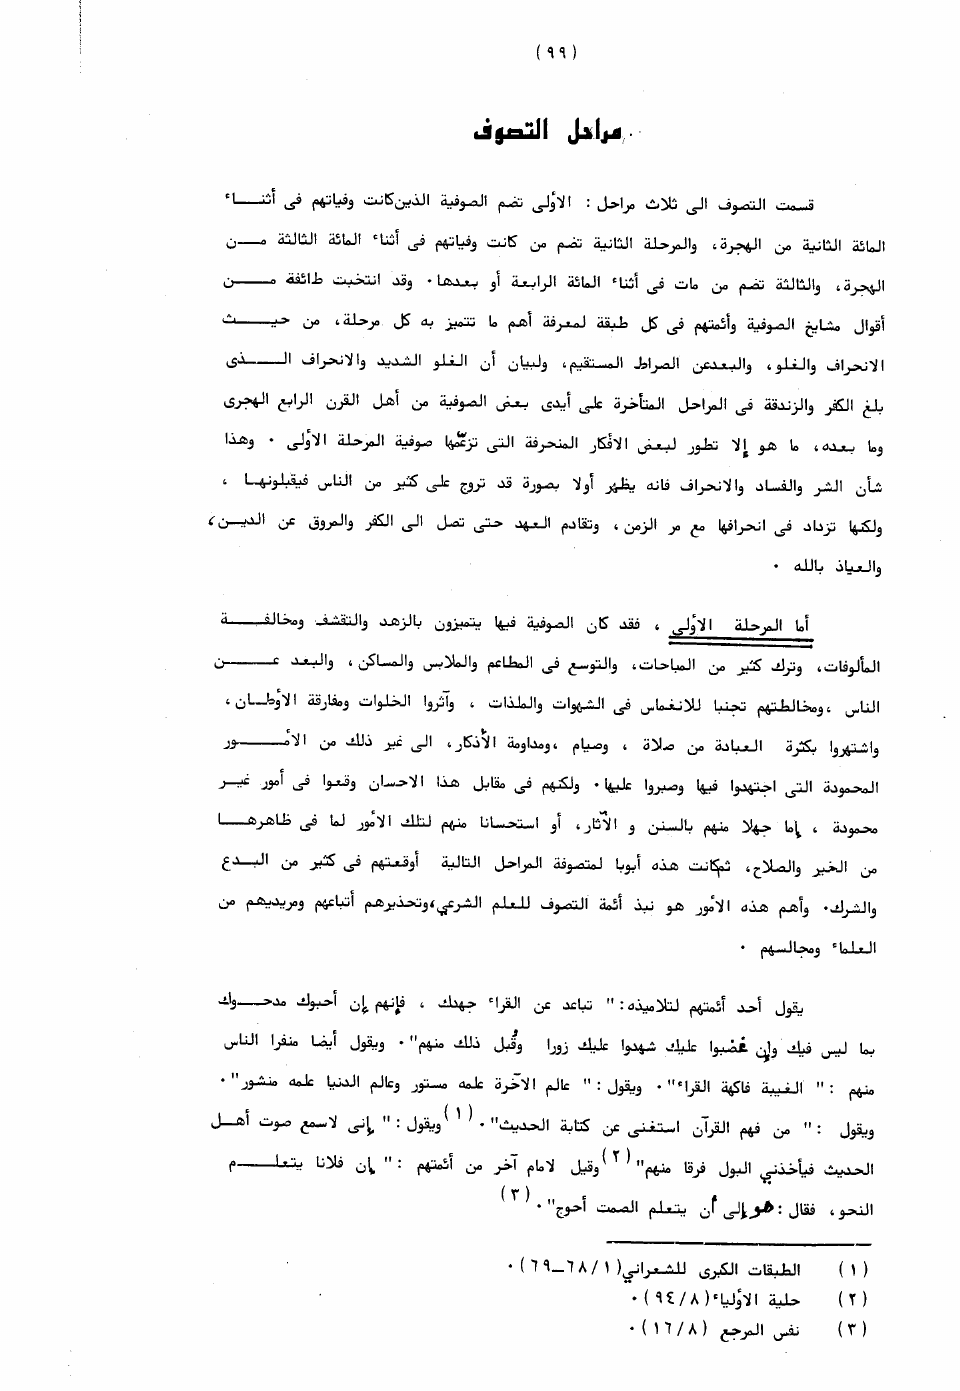 (٩٩)
مراحل التصوف
قسمت التصوف الى ثلاث مراحل : الأولى تضم الصوفية الذين كانت وفياتهم فى أثنـــاء
المائة الثانية من الهجرة، والمرحلة الثانية تضم من كانت وفياتهم فى أثناء المائة الثالثة مـــن
الهجرة، والثالثة تضم من مات فى أثناء المائة الرابعة أو بعدها٠ وقد انتخبت طائفة مـــن
أقوال مشايخ الصوفية وأئمتهم فى كل طبقة لمعرفة أهم ما تتميز به كل مرحلة، من حيـــث
الانحراف والغلو، والبعدعن الصراط المستقيم، ولبيان أن الغلو الشديد والانحراف الـــذى
بلغ الكفر والزندقة فى المراحل المتأخرة على أيدى بعض الصوفية من أهل القرن الرابع الهجرى
وما بعده، ما هو إلا تطور لبعض الأفكار المنحرفة التى تزعّمها صوفية المرحلة الأولى ٠ وهذا
شأن الشر والفساد والانحراف فانه يظهر أولا بصورة قد تروج على كثير من الناس فيقبلونهـا ،
ولكنها تزداد فى انحرافها مع مر الزمن، وتقادم العهد حتى تصل الى الكفر والمروق عن الديـن،
والعياذ بالله ٠
أما المرحلة الأولى ، فقد كان الصوفية فيها يتميزون بالزهد والتقشف ومخالفـــة
المألوفات، وترك كثير من المباحات، والتوسع فى المطاعم والملابس والمساكن، والبعد عـــن
الناس ،ومخالطتهم تجنبا للانغماس فى الشهوات والملذات ، وآثروا الخلوات ومفارقة الأوطـان،
واشتهروا بكثرة العبادة من صلاة ، وصيام ،ومداومة الأذكار، الى غير ذلك من الأمـــور
المحمودة التى اجتهدوا فيها وصبروا عليها٠ ولكنهم فى مقابل هذا الاحسان وقعوا فى أمور غيـر
محمودة ، إما جهلا منهم بالسنن و الآثار، أو استحسانا منهم لتلك الأمور لما فى ظاهرهـــا
من الخير والصلاح، ثم كانت هذه أبوبا لمتصوفة المراحل التالية أوقعتهم فى كثير من البـدع
والشرك٠ وأهم هذه الأمور هو نبذ أئمة التصوف للعلم الشرعي،وتحذيرهم أتباعهم ومريديهم من
العلماء ومجالسهم ٠
يقول أحد أئمتهم لتلاميذه: " تباعد عن القراء جهدك ، فإنهم إن أحبوك مدحـــوك
بما ليس فيك وإن غضبوا عليك شهدوا عليك زورا وقُبل ذلك منهم"٠ ويقول أيضا منفرا الناس
منهم : " الغيبة فاكهة القراء"٠ ويقول: " عالم الآخرة علمه مستور وعالم الدنيا علمه منشور"٠
ويقول : " من فهم القرآن استغنى عن كتابة الحديث"٠(١)ويقول: " إنى لاسمع صوت أهـل
الحديث فيأخذني البول فرقا منهم"(٢)وقيل لامام آخر من أئمتهم : " إن فلانا يتعلـــم
النحو، فقال: هو إلى أن يتعلم الصمت أحوج"٠(٣)
(١) الطبقات الكبرى للشعراني(١/ ٦٨ــ٦٩)٠
(٢) حلية الأولياء(٨/ ٩٤)٠
(٣) نفس المرجع (٨/ ١٦)٠